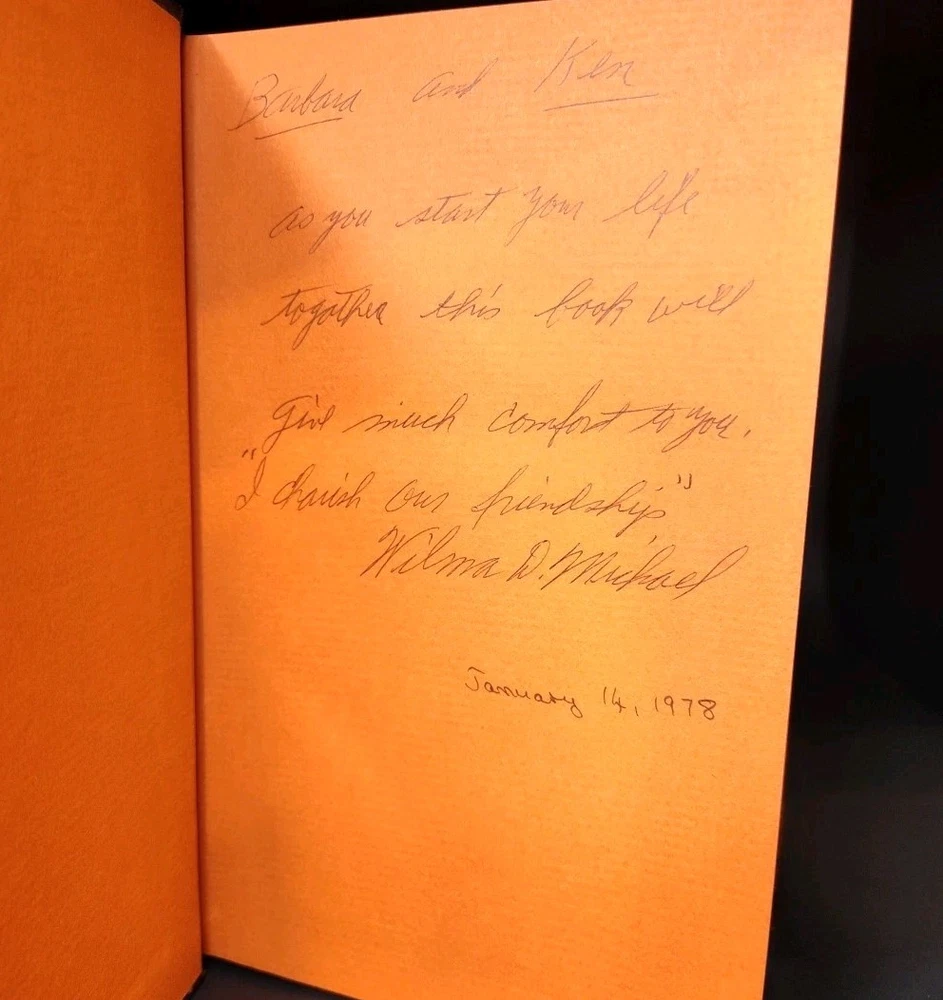 Barbara and Ken
as you start your life
together this book will
Give much comfort to you.
"I charish our friendship"
Wilma D. Michael
January 14, 1978